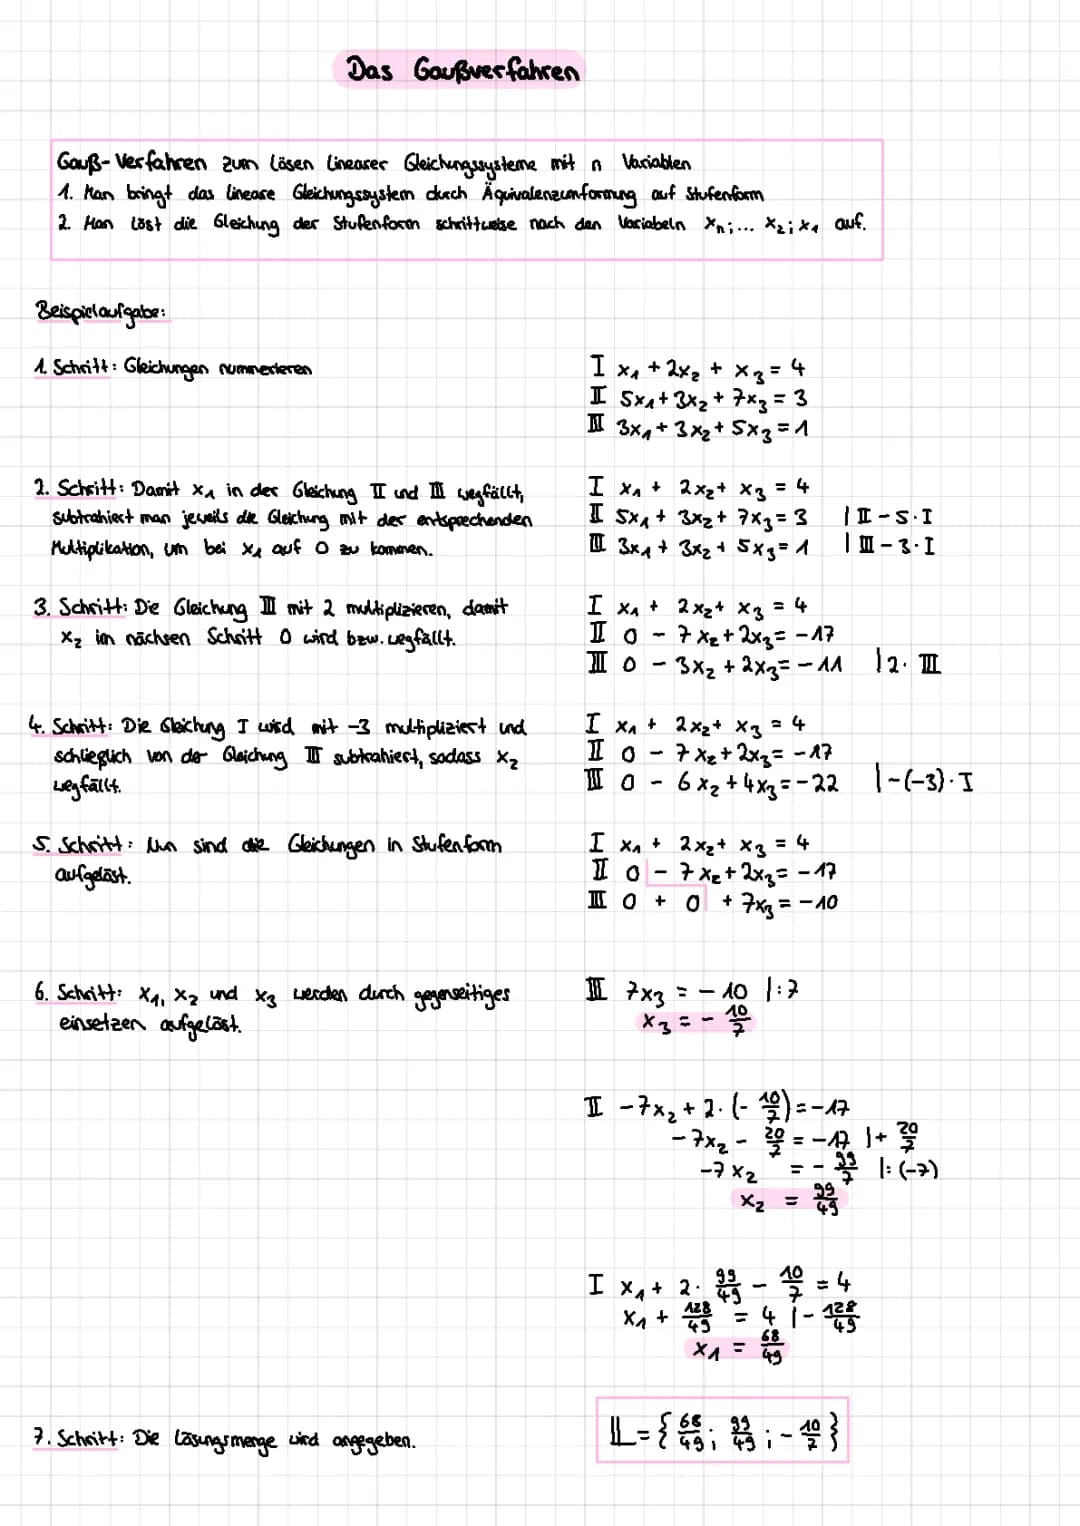 Das Gaußverfahren
Gauß-Verfahren zum Lösen Linearer Gleichungssysteme mit n Variablen
1. Man bringt das lineare Gleichungssystem durch Äquivalenzumformung auf Stufenform
2. Man löst die Gleichung der Stufenform schrittweise nach den Variabeln xₙ;... x₂; x₁ auf.
Beispielaufgabe:
1. Schritt: Gleichungen nummerieren
I x₁ + 2x₂ + x₃ = 4
II 5x₁ + 3x₂ + 7x₃ = 3
III 3x₁ + 3x₂ + 5x₃ = 1
2. Schritt: Damit x₁ in der Gleichung II und III wegfällt,
subtrahiert man jeweils die Gleichung mit der entsprechenden
Multiplikation, um bei x₁ auf 0 zu kommen.
I x₁ + 2x₂ + x₃ = 4
II 5x₁ + 3x₂ + 7x₃ = 3 | II - 5·I
III 3x₁ + 3x₂ + 5x₃ = 1 | III - 3·I
3. Schritt: Die Gleichung III mit 2 multiplizieren, damit
x₂ im nächsen Schritt 0 wird bzw. wegfällt.
I x₁ + 2x₂ + x₃ = 4
II 0 - 7x₂ + 2x₃ = -17
III 0 - 3x₂ + 2x₃ = -11 | 2· III
4. Schritt: Die Gleichung I wird mit -3 multipliziert und
schließlich von der Gleichung III subtrahiert, sodass x₂
wegfällt.
I x₁ + 2x₂ + x₃ = 4
II 0 - 7x₂ + 2x₃ = -17
III 0 - 6x₂ + 4x₃ = -22 | -(-3)·I
5. Schritt: Nun sind die Gleichungen in Stufenform
aufgelöst.
I x₁ + 2x₂ + x₃ = 4
II 0 - 7x₂ + 2x₃ = -17
III 0 + 0 + 7x₃ = -10
6. Schritt: x₁, x₂ und x₃ werden durch gegenseitiges
einsetzen aufgelöst.
III 7x₃ = -10 |:7
x₃ = - 10/7
II -7x₂ + 2·(- 10/7) = -17
-7x₂ - 20/7 = -17 |+ 20/7
-7x₂ = - 99/7 |:(-7)
x₂ = 99/49
I x₁ + 2· 99/49 - 10/7 = 4
x₁ + 128/49 = 4 |- 128/49
x₁ = 68/49
7. Schritt: Die Lösungsmenge wird angegeben.
𝕃 = { 68/49 ; 99/49 ; - 10/7 }